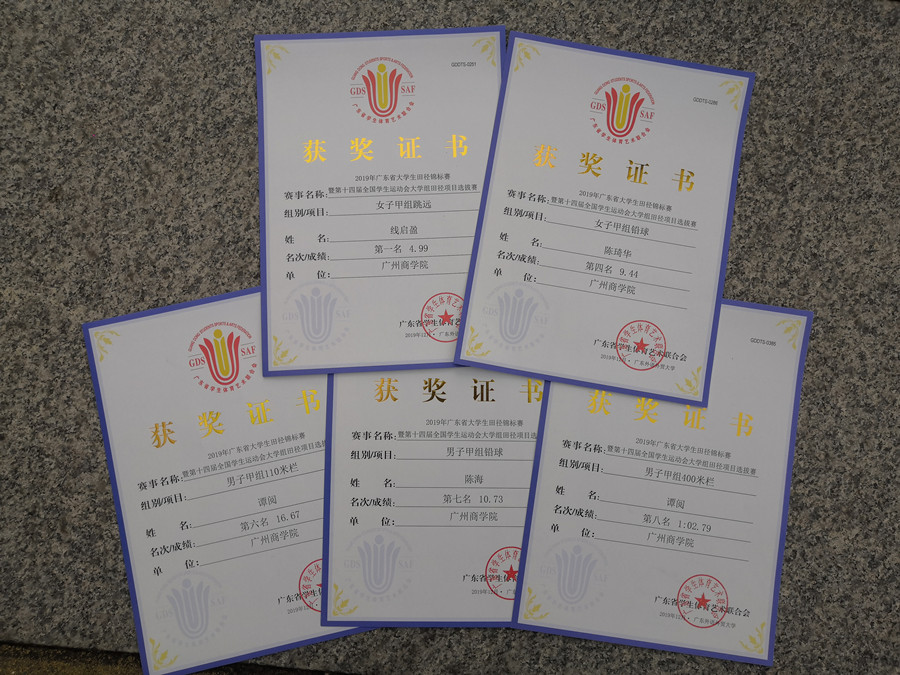 GDDTS-0261
GDS SAF
广东省学生体育艺术联合会
获奖证书
2019年广东省大学生田径锦标赛
赛事名称:暨第十四届全国学生运动会大学组田径项目选拔赛
组别/项目: 女子甲组跳远
姓 名: 线启盈
名次/成绩: 第一名 4.99
单 位: 广州商学院
广东省学生体育艺
2019年12月· 广东外
GDDTS-0285
GDS SAF
广东省学生体育艺术联合会
获奖证书
2019年广东省大学生田径锦标赛
赛事名称:暨第十四届全国学生运动会大学组田径项目选拔赛
组别/项目: 女子甲组铅球
姓 名: 陈琦华
名次/成绩: 第四名 9.44
单 位: 广州商学院
广东省学生体育艺术联合会
2019年12月· 广东外语外贸大学
GDS SAF
广东省学生体育艺术联合会
获奖证书
2019年广东省大学生田径锦标赛
赛事名称:暨第十四届全国学生运动会大学组田径项目选
组别/项目: 男子甲组110米栏
姓 名: 谭闽
名次/成绩: 第六名 16.67
单 位: 广州商学院
广东省学
2019年12
获奖证书
2019年广东省大学生田径锦标赛
赛事名称:暨第十四届全国学生运动会大学组田径项目选
组别/项目: 男子甲组铅球
姓 名: 陈海
名次/成绩: 第七名 10.73
单 位: 广州商学院
广东省学生体
2019年12月· 广
GDDTS-0385
获奖证书
2019年广东省大学生田径锦标赛
赛事名称:暨第十四届全国学生运动会大学组田径项目选拔赛
组别/项目: 男子甲组400米栏
姓 名: 谭闽
名次/成绩: 第八名 1:02.79
单 位: 广州商学院
广东省学生体育艺术联合会
2019年12月· 广东外语外贸大学